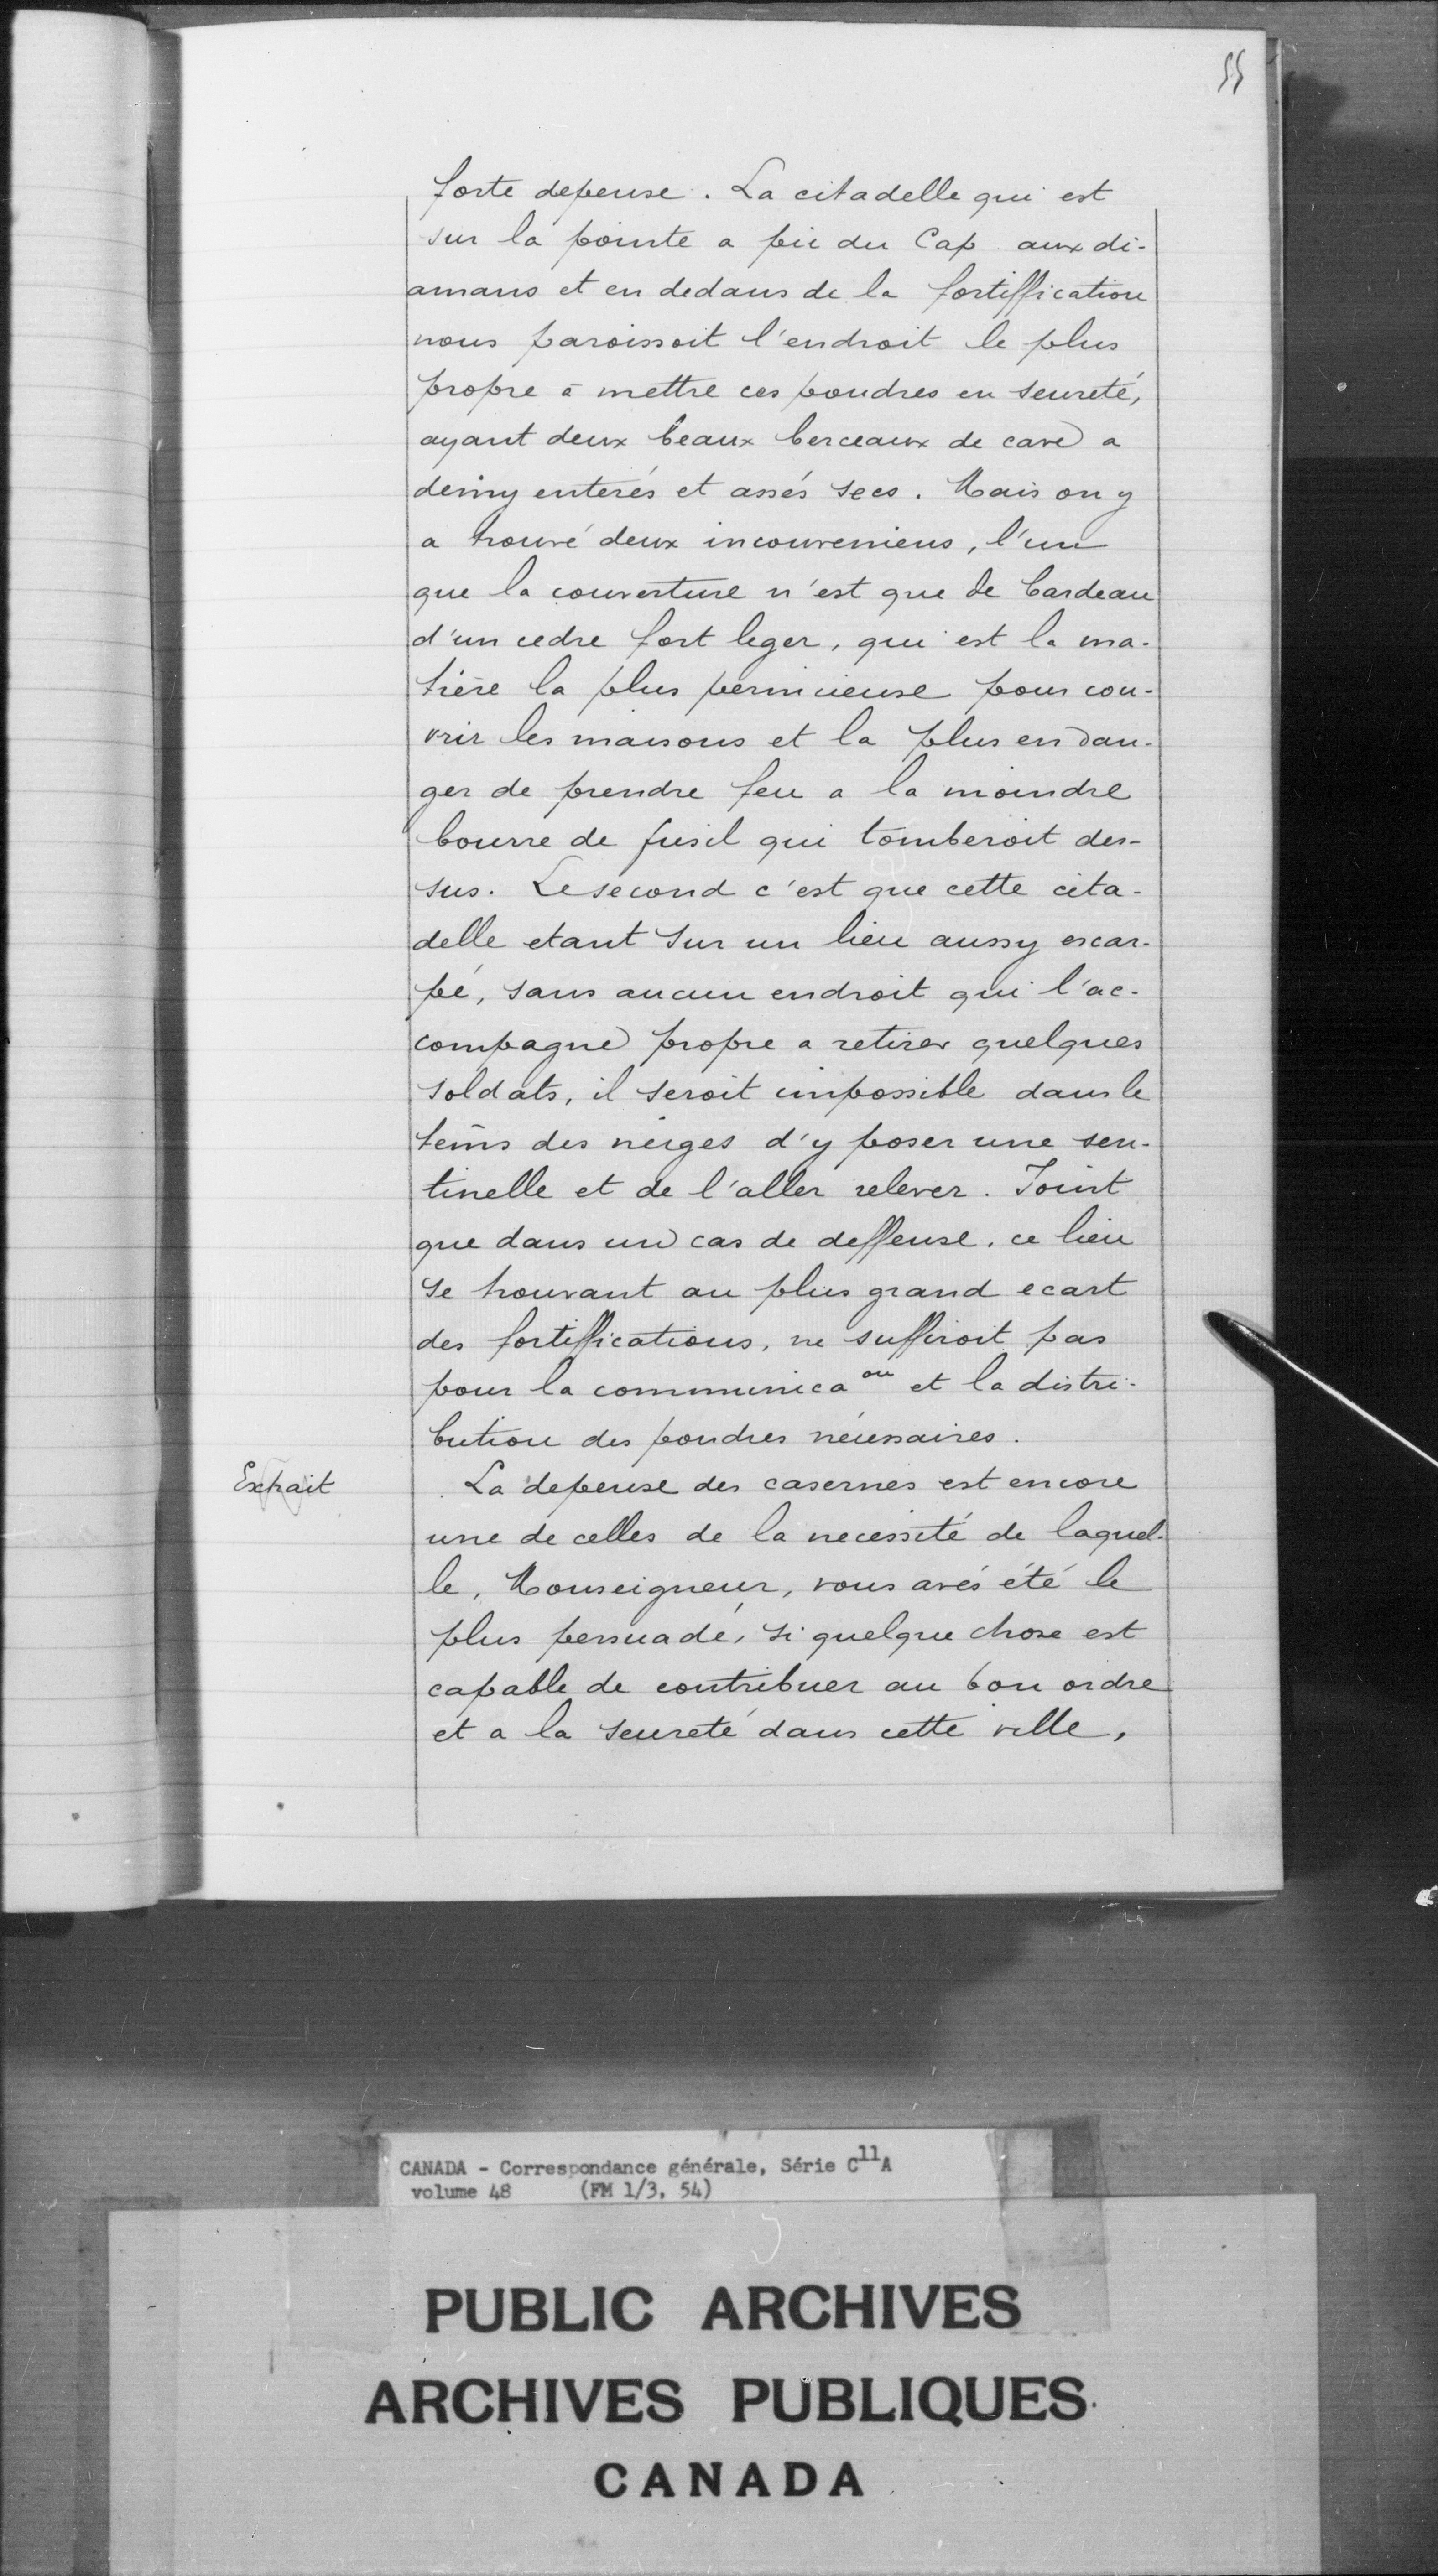 55
forte depense. La citadelle qui est
sur la pointe a pic du Cap aux di-
amans et en dedans de la fortiffication
nous paroissoit l'endroit le plus
propre à mettre ces poudres en seureté,
ayant deux beaux berceaux de cave a
demy enterés et assés secs. Mais on y
a trouvé deux inconveniens, l'un
que la couverture n'est que de bardeau
d'un cedre fort leger, qui est la ma-
tière la plus pernicieuse pour cou-
vrir les maisons et la plus en dan-
ger de prendre feu a la moindre
bourre de fusil qui tomberoit des-
sus. Le second c'est que cette cita-
delle etant sur un lieu aussy escar-
pé, sans aucun endroit qui l'ac-
compagne propre a retirer quelques
soldats, il seroit impossible dans le
tems des neiges d'y poser une sen-
tinelle et de l'aller relever. Joint
que dans un cas de deffense, ce lieu
se trouvant au plus grand ecart
des fortiffications, ne suffiroit pas
pour la communicaon et la distri-
bution des poudres nécessaires.
Extrait
La depense des casernes est encore
une de celles de la necessité de laquel-
le, Monseigneur, vous avés été le
plus persuadé, si quelque chose est
capable de contribuer au bon ordre
et a la seureté dans cette ville,
CANADA - Correspondance générale, Série C11A
volume 48 (FM 1/3, 54)
PUBLIC ARCHIVES
ARCHIVES PUBLIQUES
CANADA